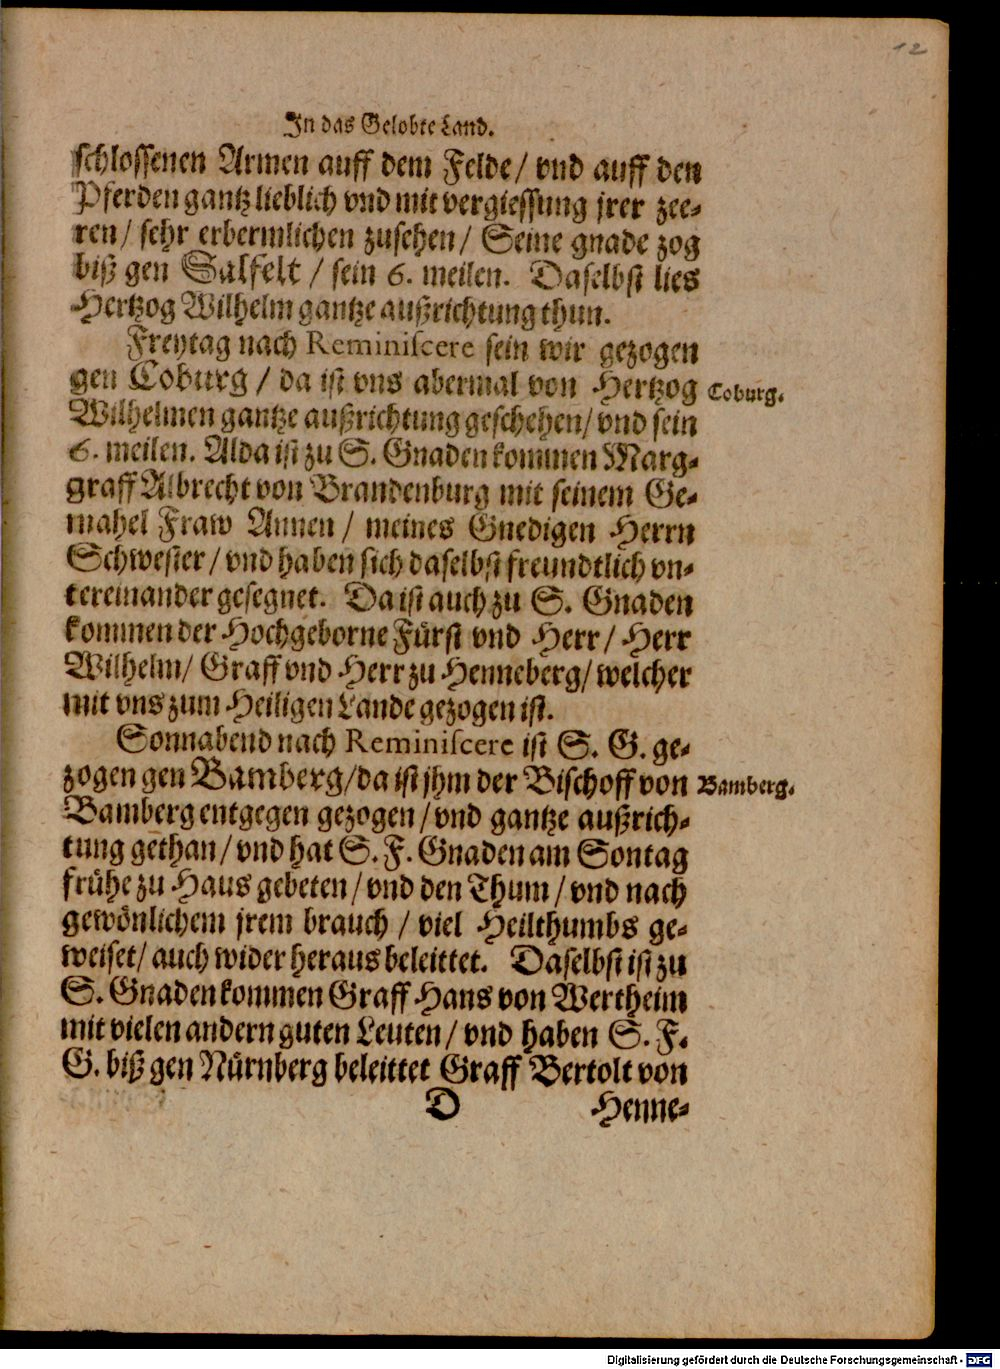 12
In das Gelobte Land.
schlossenen Armen auff dem Felde / vnd auff den
Pferden gantz lieblich vnd mit vergiessung jrer zee-
ren / sehr erbermlichen zusehen / Seine gnade zog
biß gen Salfelt / sein 6. meilen. Daselbst lies
Hertzog Wilhelm gantze außrichtung thun.
Freytag nach Reminiscere sein wir gezogen
gen Coburg / da ist vns abermal von Hertzog
Coburg.
Wilhelmen gantze außrichtung geschehen / vnd sein
6. meilen. Alda ist zu S. Gnaden kommen Marg-
graff Albrecht von Brandenburg mit seinem Ge-
mahel Fraw Annen / meines Gnedigen Herrn
Schwester / vnd haben sich daselbst freundtlich vn-
tereinander gesegnet. Da ist auch zu S. Gnaden
kommen der Hochgeborne Fürst vnd Herr / Herr
Wilhelm / Graff vnd Herr zu Henneberg / welcher
mit vns zum Heiligen Lande gezogen ist.
Sonnabend nach Reminiscere ist S. G. ge-
zogen gen Bamberg / da ist jhm der Bischoff von
Bamberg.
Bamberg entgegen gezogen / vnd gantze außrich-
tung gethan / vnd hat S. F. Gnaden am Sontag
frühe zu Haus gebeten / vnd den Thum / vnd nach
gewönlichem jrem brauch / viel Heilthumbs ge-
weiset / auch wider heraus beleittet. Daselbst ist zu
S. Gnaden kommen Graff Hans von Wertheim
mit vielen andern guten Leuten / vnd haben S. F.
G. biß gen Nürnberg beleittet Graff Bertolt von
D
Henne-
Digitalisierung gefördert durch die Deutsche Forschungsgemeinschaft - DFG